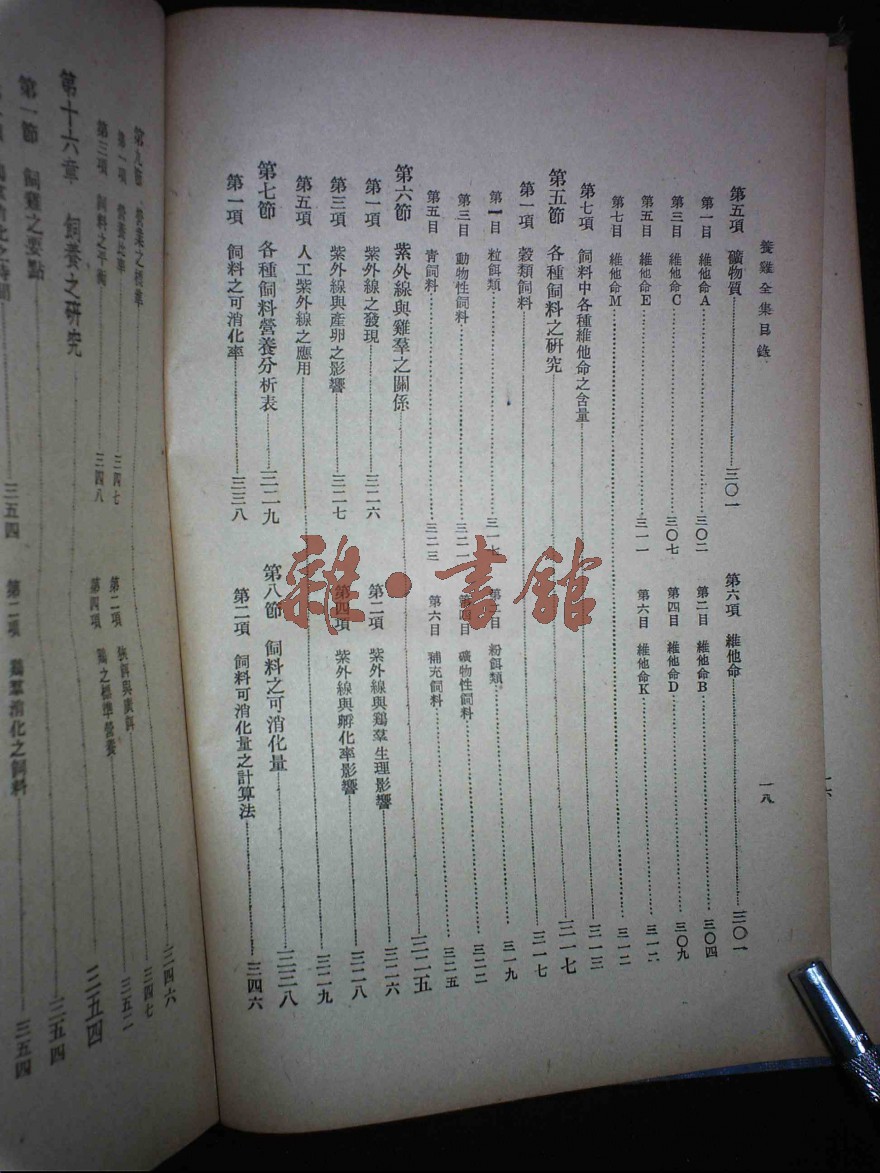 養雞全集目錄
一八
第五項 礦物質 三〇一
第六項 維他命 三〇一
第一目 維他命A 三〇二
第二目 維他命B 三〇四
第三目 維他命C 三〇七
第四目 維他命D 三〇九
第五目 維他命E 三一一
第六目 維他命K 三一二
第七目 維他命M 三一二
第七項 飼料中各種維他命之含量 三一三
第五節 各種飼料之研究 三一七
第一項 穀類飼料 三一七
第一目 粒餌類 三一七
第二目 粉餌類 三一九
第三目 動物性飼料 三二一
第四目 礦物性飼料 三二二
第五目 青飼料 三二三
第六目 補充飼料 三二五
第六節 紫外線與雞羣之關係 三二五
第一項 紫外線之發現 三二六
第二項 紫外線與鷄羣生理影響 三二六
第三項 紫外線與產卵之影響 三二七
第四項 紫外線與孵化率影響 三二八
第五項 人工紫外線之應用 三二九
第七節 各種飼料營養分析表 三二九
第八節 飼料之可消化量 三三八
第一項 飼料之可消化率 三三八
第二項 飼料可消化量之計算法 三四六
第九節 營業之標準 三四六
第一項 營養比率 三四七
第二項 狹料與廣料 三四七
第三項 飼料之平衡 三四八
第四項 鷄之標準營養 三五二
第十六章 飼養之研究 三五四
第一節 飼雞之要點 三五四
三五四
第二項 鷄羣消化之飼料 三五四
雜·書館